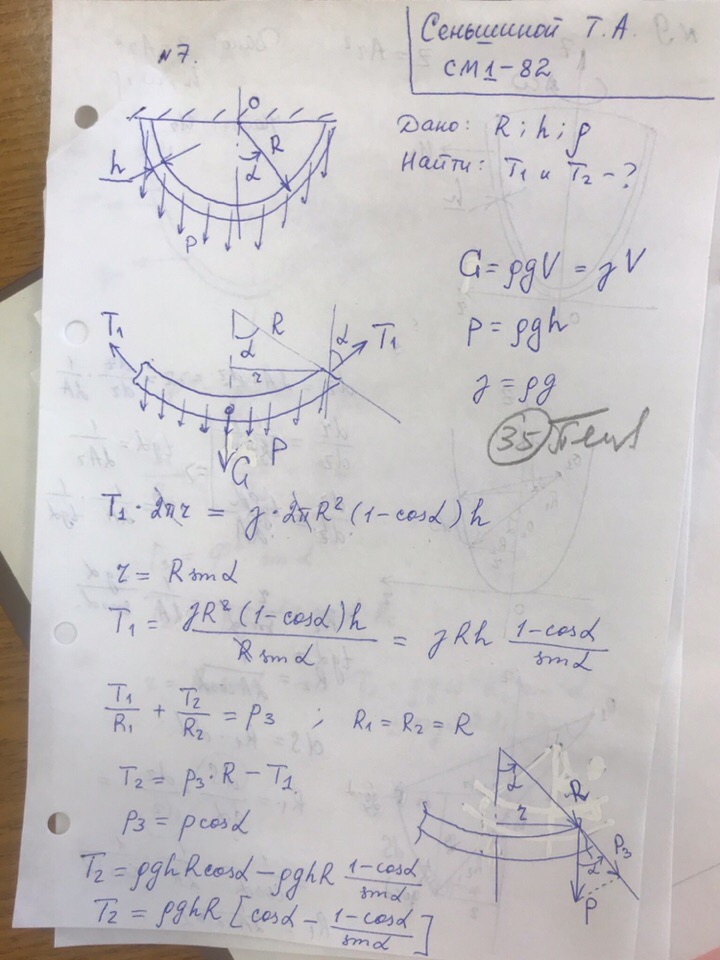 №7.
Сеньшиной Т.А.
СМ1-82
O
R
α
h
P
Дано: R; h; ρ
Найти: T₁ и T₂ - ?
G = ρgV = γV
P = ρgh
γ = ρg
35
T₁
α
R
r
α
T₁
P
G
T₁ · 2πr = γ · 2πR² (1-cosα) h
r = R sinα
T₁ = γR² (1-cosα)h / R sinα = γRh 1-cosα / sinα
T₁/R₁ + T₂/R₂ = P₃ ; R₁ = R₂ = R
T₂ = P₃·R - T₁
P₃ = p cosα
α
R
r
P₃
α
P
T₂ = ρghRcosα - ρghR 1-cosα / sinα
T₂ = ρghR [cosα - 1-cosα / sinα]